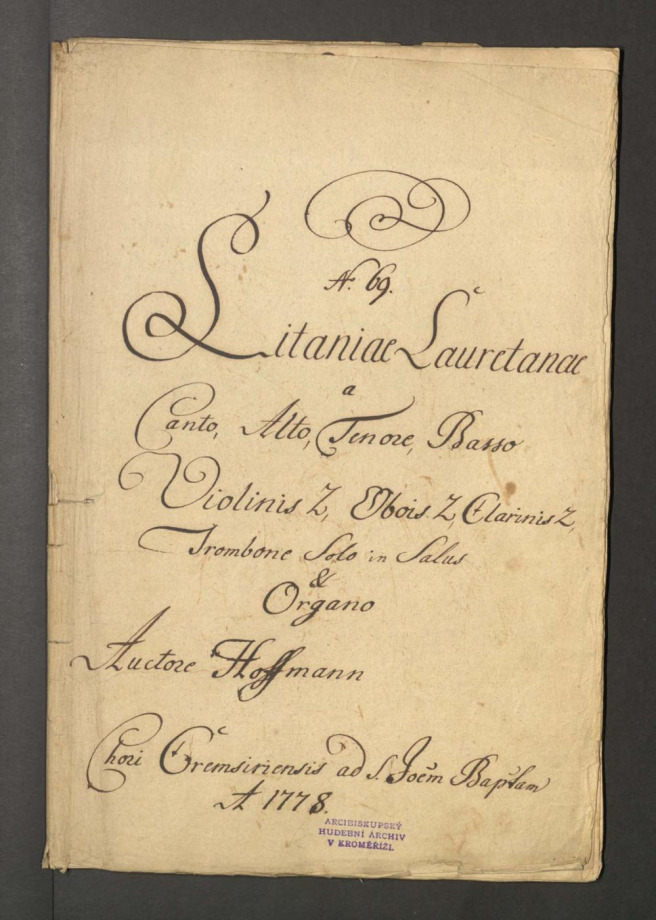 N. 69.
Litaniae Lauretanae
a
Canto, Alto, Tenore, Basso
Violinis 2, Obois 2, Clarinis 2,
Trombone Solo in Salus
&
Organo
Auctore Hoffmann
Chori Cremsiriensis ad S. Joêm Bapt̃am
A 1778.
ARCIBISKUPSKÝ
HUDEBNÍ ARCHIV
V KROMĚŘÍŽI.